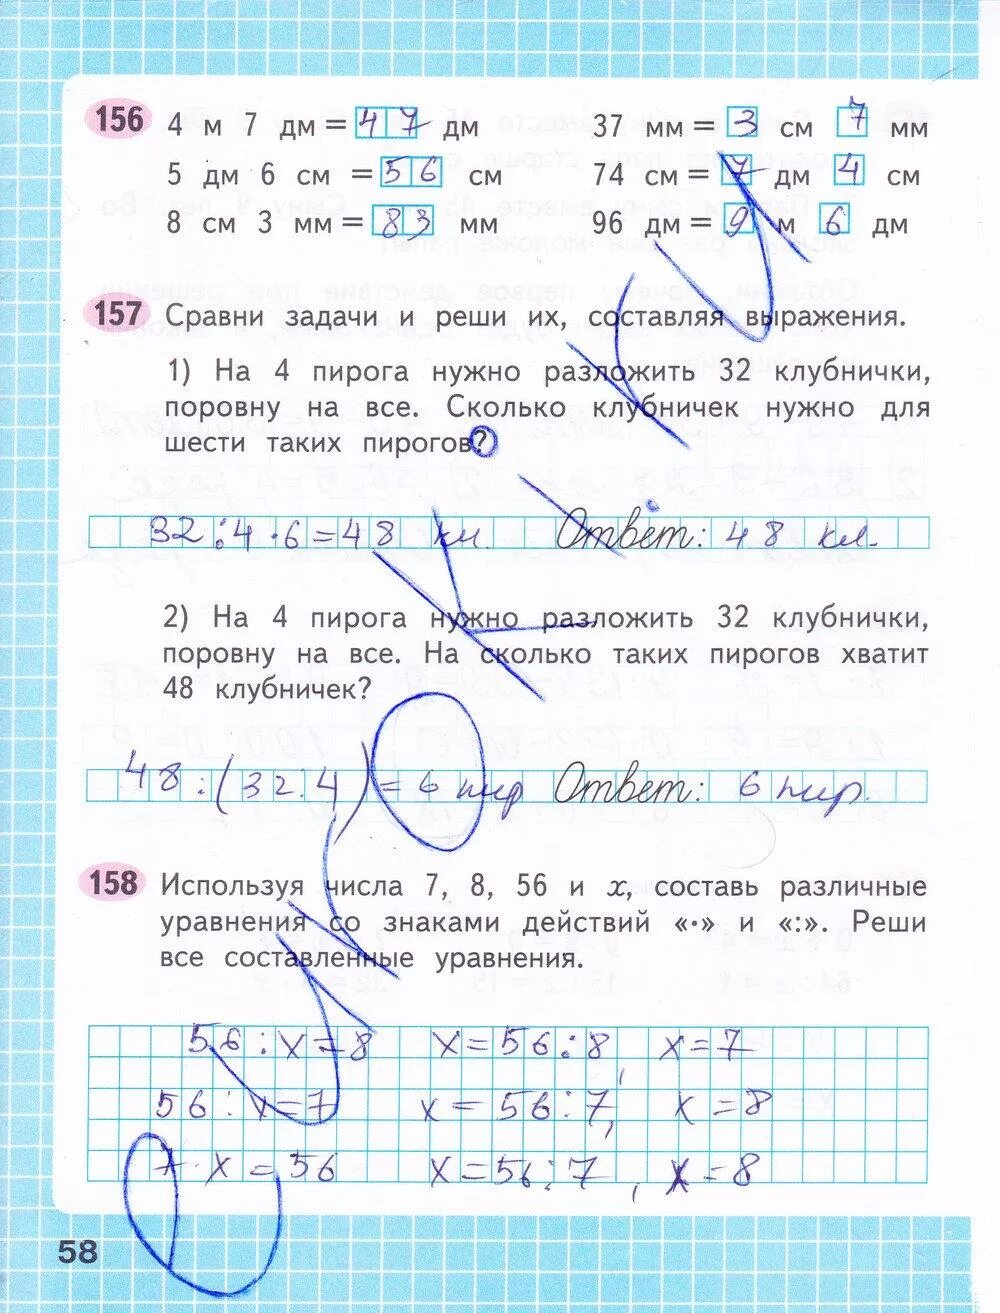 156 4 м 7 дм = 47 дм 37 мм = 3 см 7 мм
5 дм 6 см = 56 см 74 см = 7 дм 4 см
8 см 3 мм = 83 мм 96 дм = 9 м 6 дм
157 Сравни задачи и реши их, составляя выражения.
1) На 4 пирога нужно разложить 32 клубнички,
поровну на все. Сколько клубничек нужно для
шести таких пирогов?
32 : 4 · 6 = 48 кл. Ответ: 48 кл.
2) На 4 пирога нужно разложить 32 клубнички,
поровну на все. На сколько таких пирогов хватит
48 клубничек?
48 : (32 : 4) = 6 пир Ответ: 6 пир.
158 Используя числа 7, 8, 56 и x, составь различные
уравнения со знаками действий «·» и «:». Реши
все составленные уравнения.
56 : x = 8 x = 56 : 8, x = 7
56 : x = 7 x = 56 : 7, x = 8
7 · x = 56 x = 56 : 7, x = 8
58